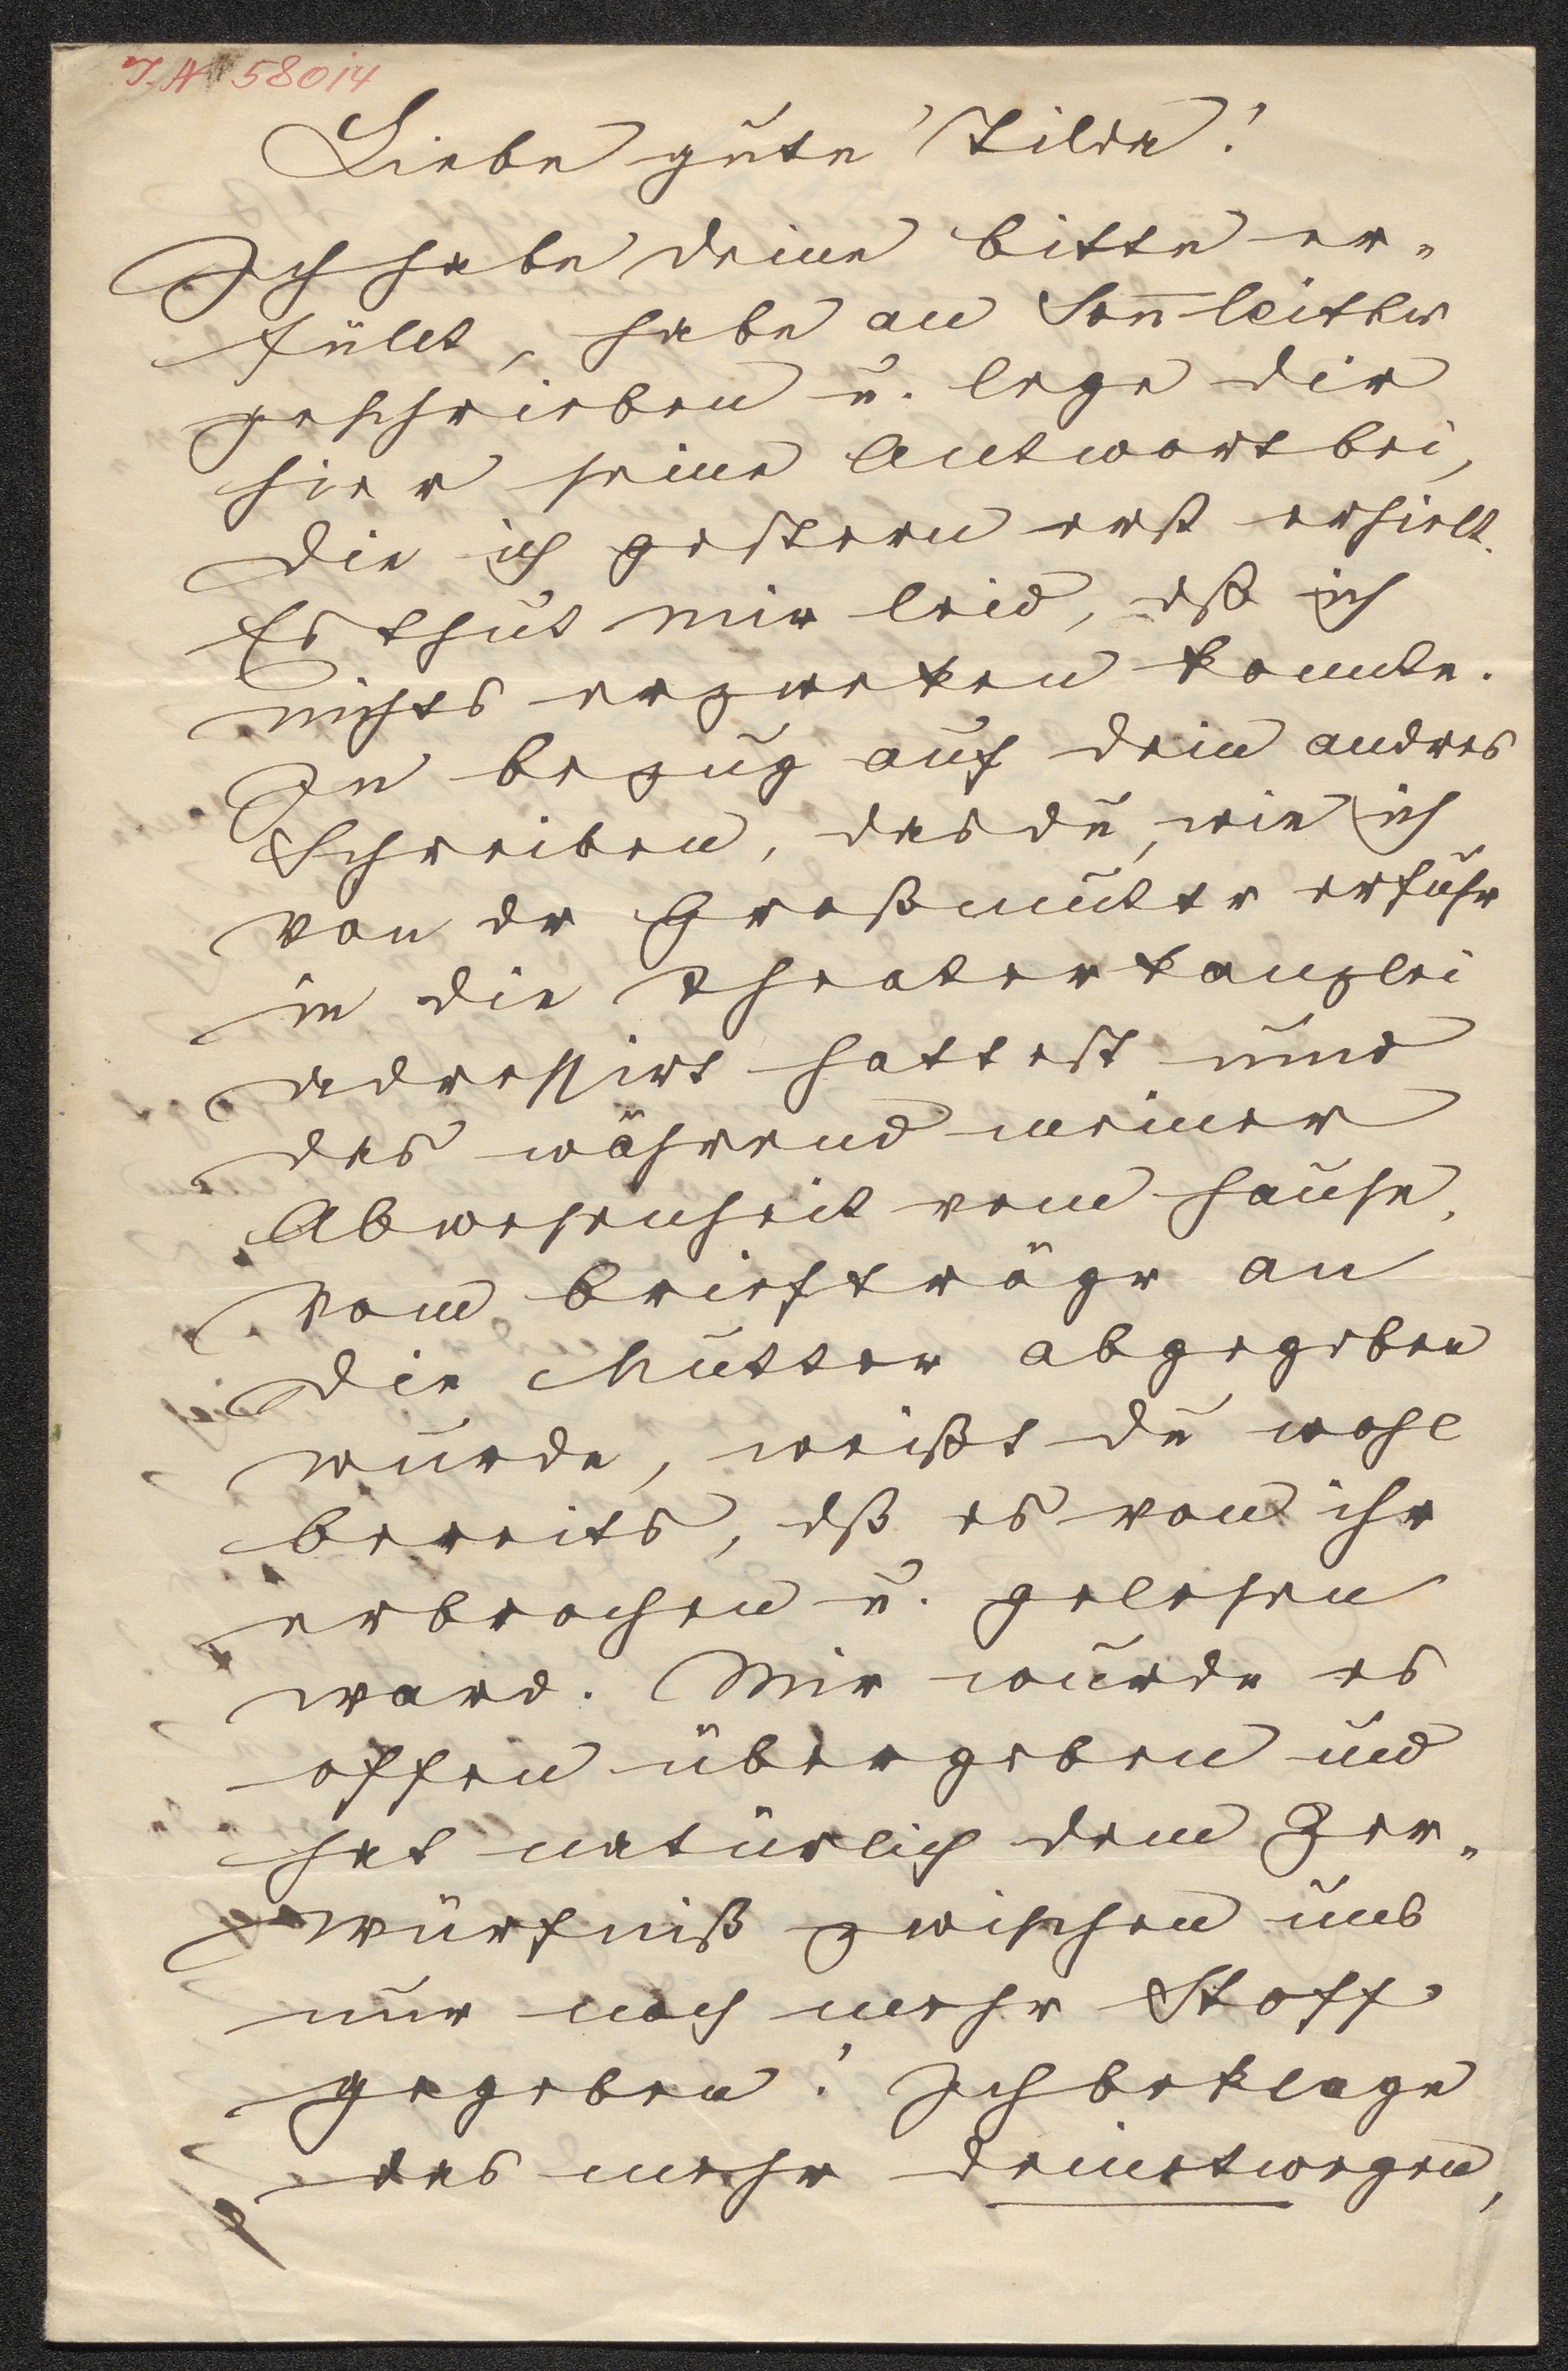 I.N 58014
Liebe gute Tilda!
Ich habe deine bitte er-
füllt, habe an Son̅leithr
geschrieben u. lege dir
hier seine Antwort bei,
die ich gestern erst erhielt.
Es thut mir leid, dß ich
nichts erzweken konnte.
In bezug auf dein andres
Schreiben, das du, wie ich
von dr Großmutter erfuhr
in die Theaterkanzlei
adressirt hattest und
das während meiner
Abwesenheit vom Hause,
vom briefträgr an
die Mutter abgegeben
wurde, weißt du wohl
bereits, dß es von ihr
erbrochen u. gelesen
ward. Mir wurde es
offen übergeben und
hat natürlich dem Zer-
würfniß zwischen uns
nur noch mehr Stoff
gegeben! Ich beklage
das mehr deinetwegen,